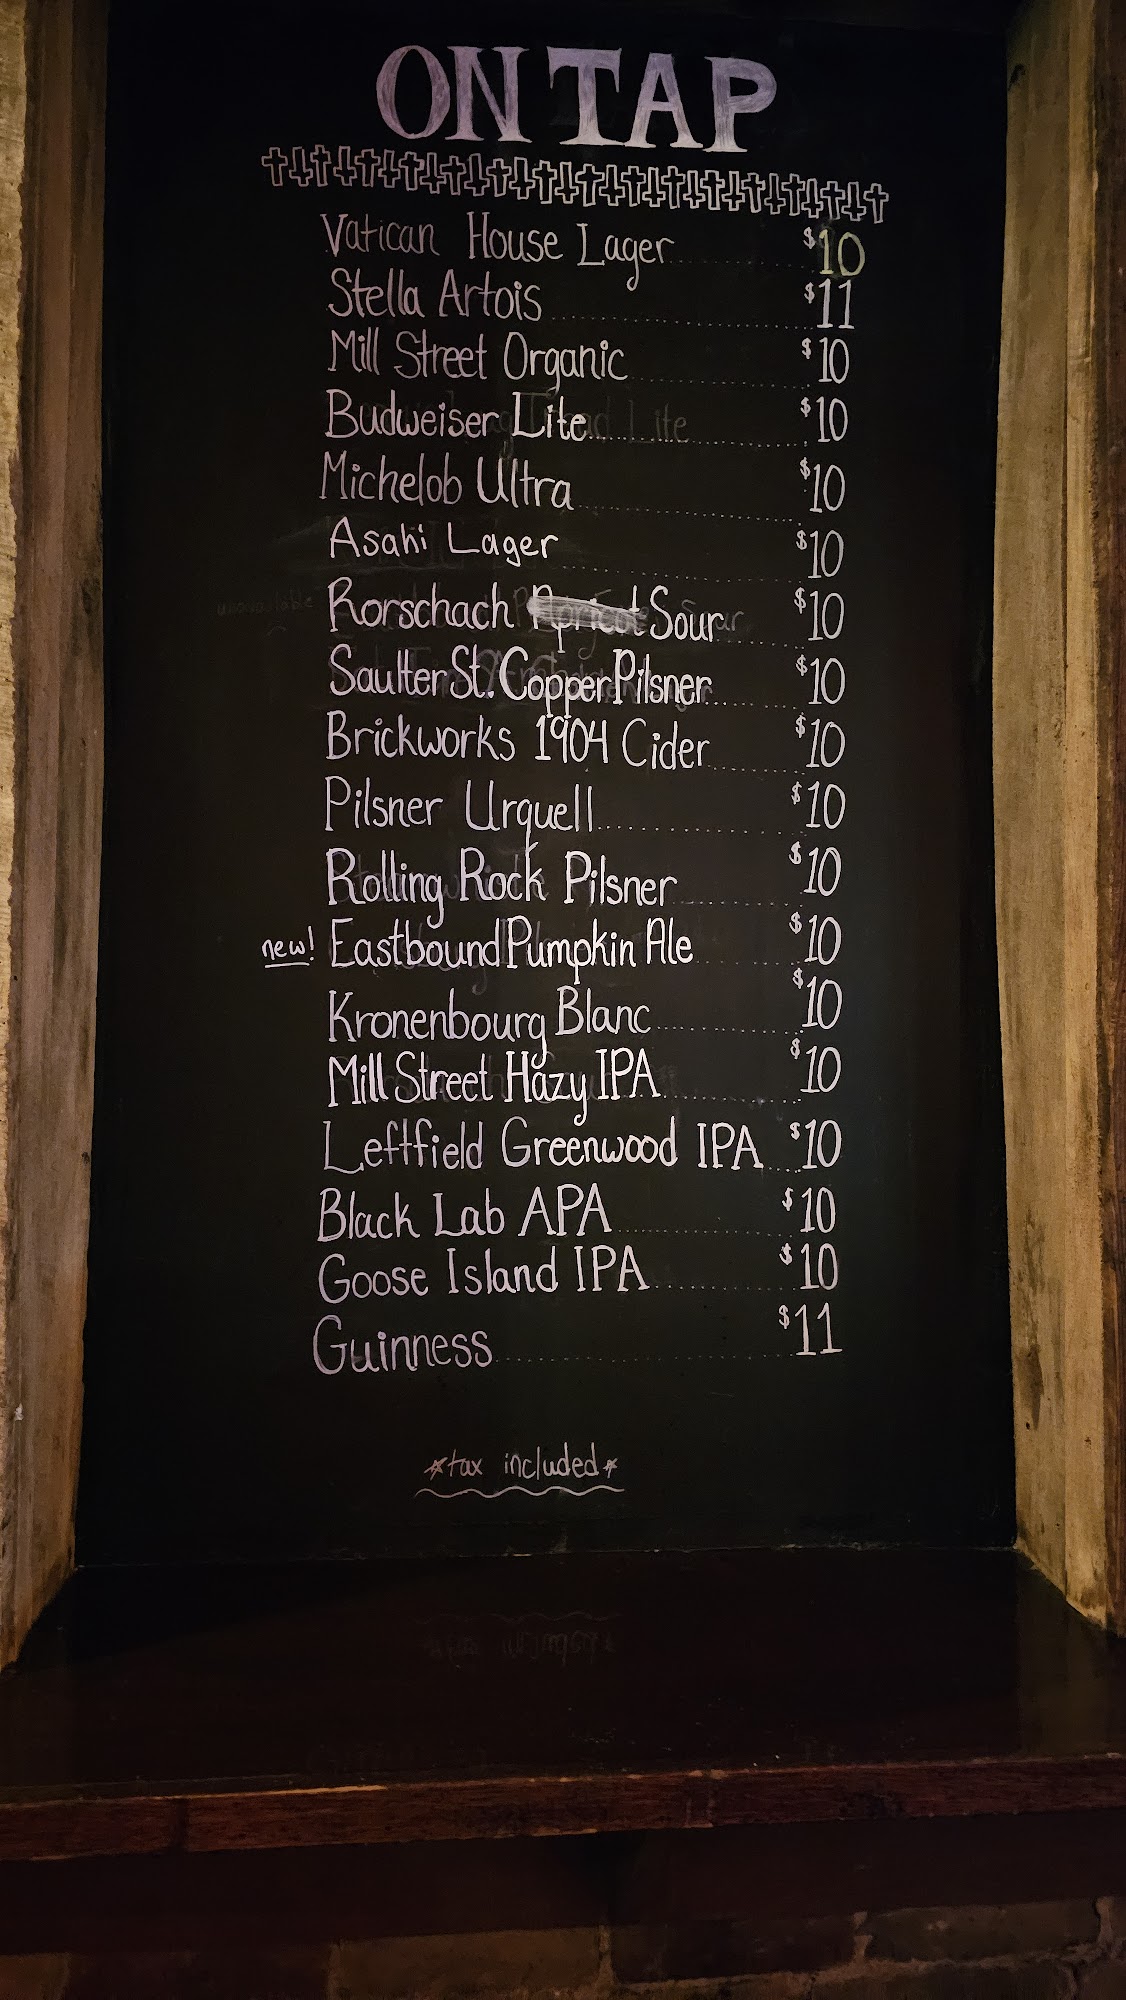 ON TAP
Vatican House Lager $10
Stella Artois $11
Mill Street Organic $10
Budweiser Lite $10
Michelob Ultra $10
Asahi Lager $10
Rorschach Apricot Sour $10
Saulter St. Copper Pilsner $10
Brickworks 1904 Cider $10
Pilsner Urquell $10
Rolling Rock Pilsner $10
new! Eastbound Pumpkin Ale $10
Kronenbourg Blanc $10
Mill Street Hazy IPA $10
Leftfield Greenwood IPA $10
Black Lab APA $10
Goose Island IPA $10
Guinness $11
*tax included*